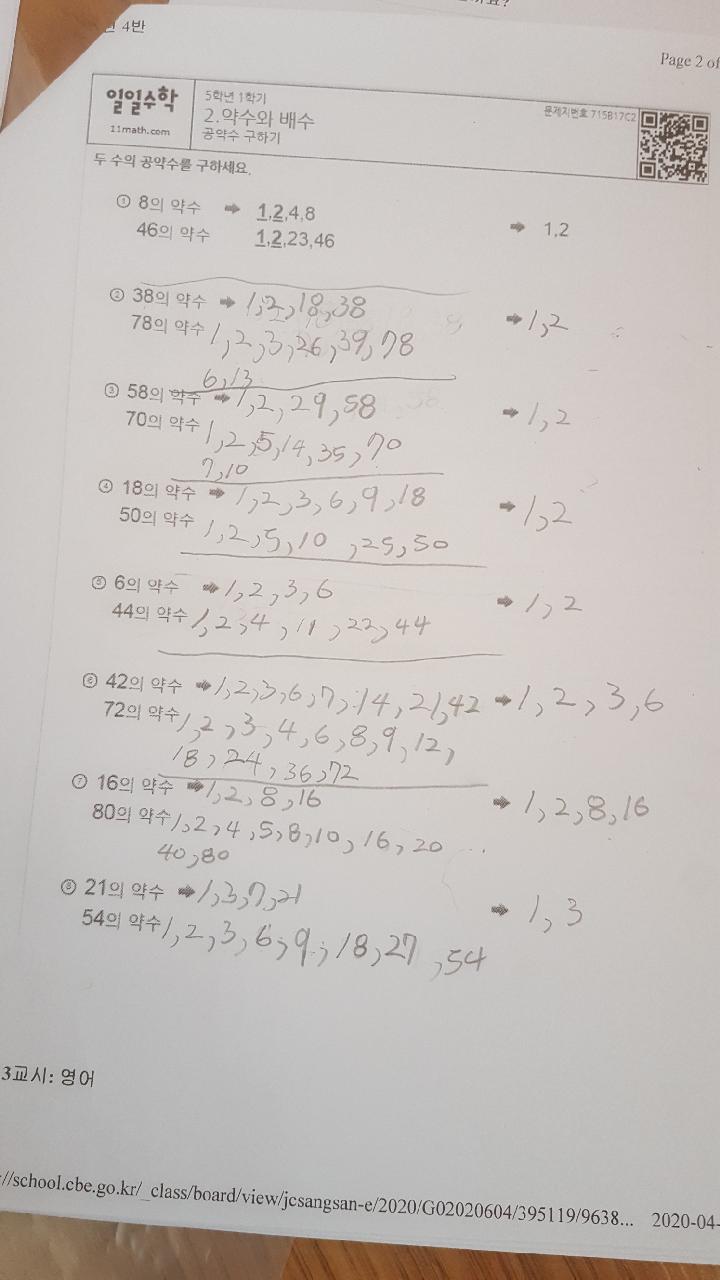 4반
Page 2 of
일일수학
11math.com
5학년 1학기
2.약수와 배수
공약수 구하기
문제지번호 715B17C2
두 수의 공약수를 구하세요.
① 8의 약수 ➡ 1,2,4,8 ➡ 1,2
46의 약수 1,2,23,46
② 38의 약수 ➡ 1,2,18,38 ➡ 1,2
78의 약수 1,2,3,26,39,78
6,13
③ 58의 약수 ➡ 1,2,29,58 ➡ 1,2
70의 약수 1,2,5,14,35,70
7,10
④ 18의 약수 ➡ 1,2,3,6,9,18 ➡ 1,2
50의 약수 1,2,5,10,25,50
⑤ 6의 약수 ➡ 1,2,3,6 ➡ 1,2
44의 약수 1,2,4,11,22,44
⑥ 42의 약수 ➡ 1,2,3,6,7,14,21,42 ➡ 1,2,3,6
72의 약수 1,2,3,4,6,8,9,12,
18,24,36,72
⑦ 16의 약수 ➡ 1,2,8,16 ➡ 1,2,8,16
80의 약수 1,2,4,5,8,10,16,20
40,80
⑧ 21의 약수 ➡ 1,3,7,21 ➡ 1,3
54의 약수 1,2,3,6,9,18,27,54
3교시: 영어
://school.cbe.go.kr/_class/board/view/jcsangsan-e/2020/G02020604/395119/9638... 2020-04-